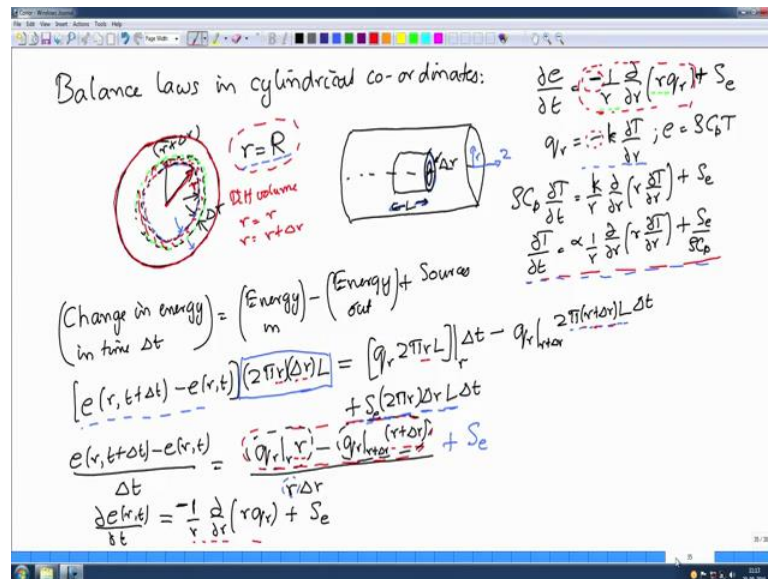 Comp - Windows Journal
File Edit View Insert Actions Tools Help
Page Width
Balance laws in cylindrical co-ordinates:
(r+Δr)
r
Δr
r = R
Diff volume
r = r
r = r+Δr
Δr
L
r
z
∂e/∂t = -1/r ∂/∂r (r q_r) + S_e
q_r = -k ∂T/∂r ; e = ρC_pT
ρC_p ∂T/∂t = k/r ∂/∂r (r ∂T/∂r) + S_e
∂T/∂t = α 1/r ∂/∂r (r ∂T/∂r) + S_e/ρC_p
(Change in energy in time Δt) = (Energy in) - (Energy out) + Sources
[e(r, t+Δt) - e(r,t)] (2πr)(Δr)L = [q_r 2πrL]|_r Δt - q_r|_{r+Δr} 2π(r+Δr)LΔt
+ S_e(2πr)Δr L Δt
e(r, t+Δt) - e(r,t) / Δt = q_r|_r r - q_r|_{r+Δr} (r+Δr) / rΔr + S_e
∂e(r,t)/∂t = -1/r ∂/∂r (r q_r) + S_e
35